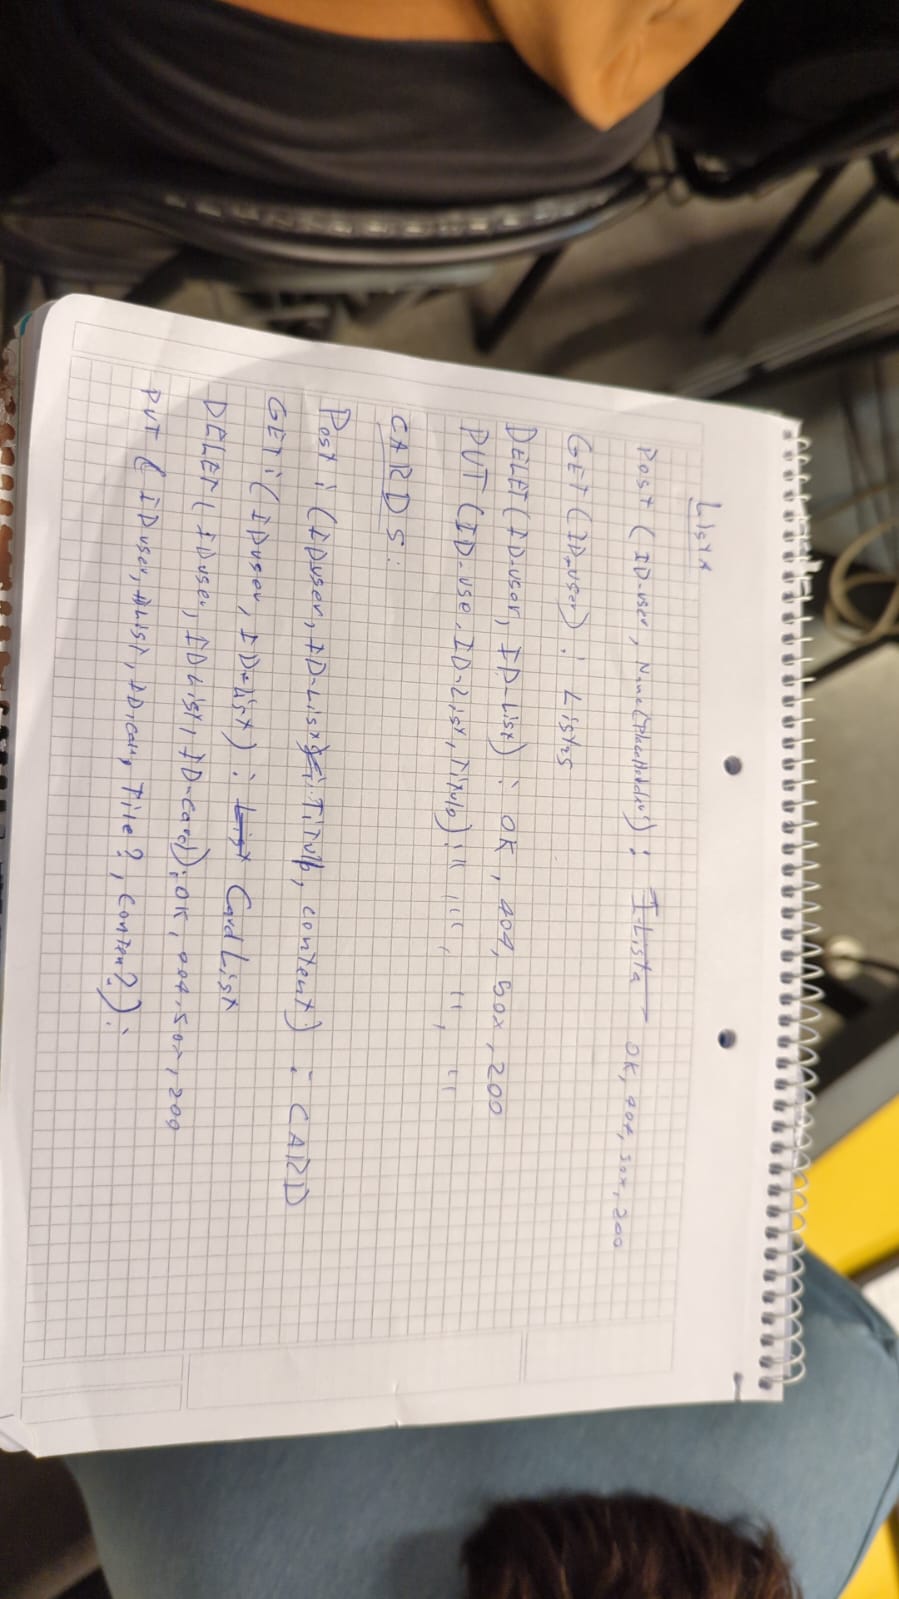 Lista
Post (ID-user, Name(placeholder)): I Lista OK, 404, 50x, 200
GET (ID-user): Listas
DELET (ID-user, ID-List): OK, 404, 50x, 200
PUT (ID-use, ID-List, Titulo): " ", ", "
CARDS:
Post: (IDuser, ID-List, Titulo, content): CARD
GET: (IDuser, ID-list): List Card List
DELET (IDuser, IDList, ID-card): OK, 404, 50x, 200
PUT (IDuser, List, IDcar, Title?, Conten?):